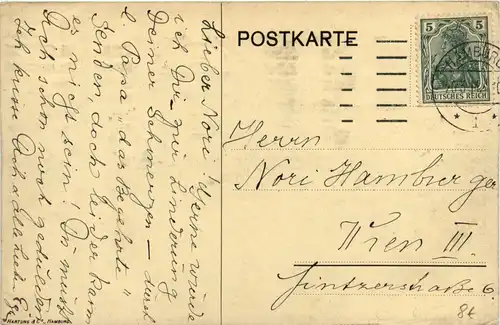 Lieber Nori! Gerne würde
ich Dir zur Linderung
Deiner Schmerzen – durch
l. Papa „das Begehrte"
senden, doch leider kann
es nicht sein! Du musst
Dich schon noch gedulden
Ich küsse Dich
HARTUNG & Co, HAMBURG.
POSTKARTE
5 5
DEUTSCHES REICH
HAMBURG
Herrn
Nori Hamburger
Wien III.
6
8t